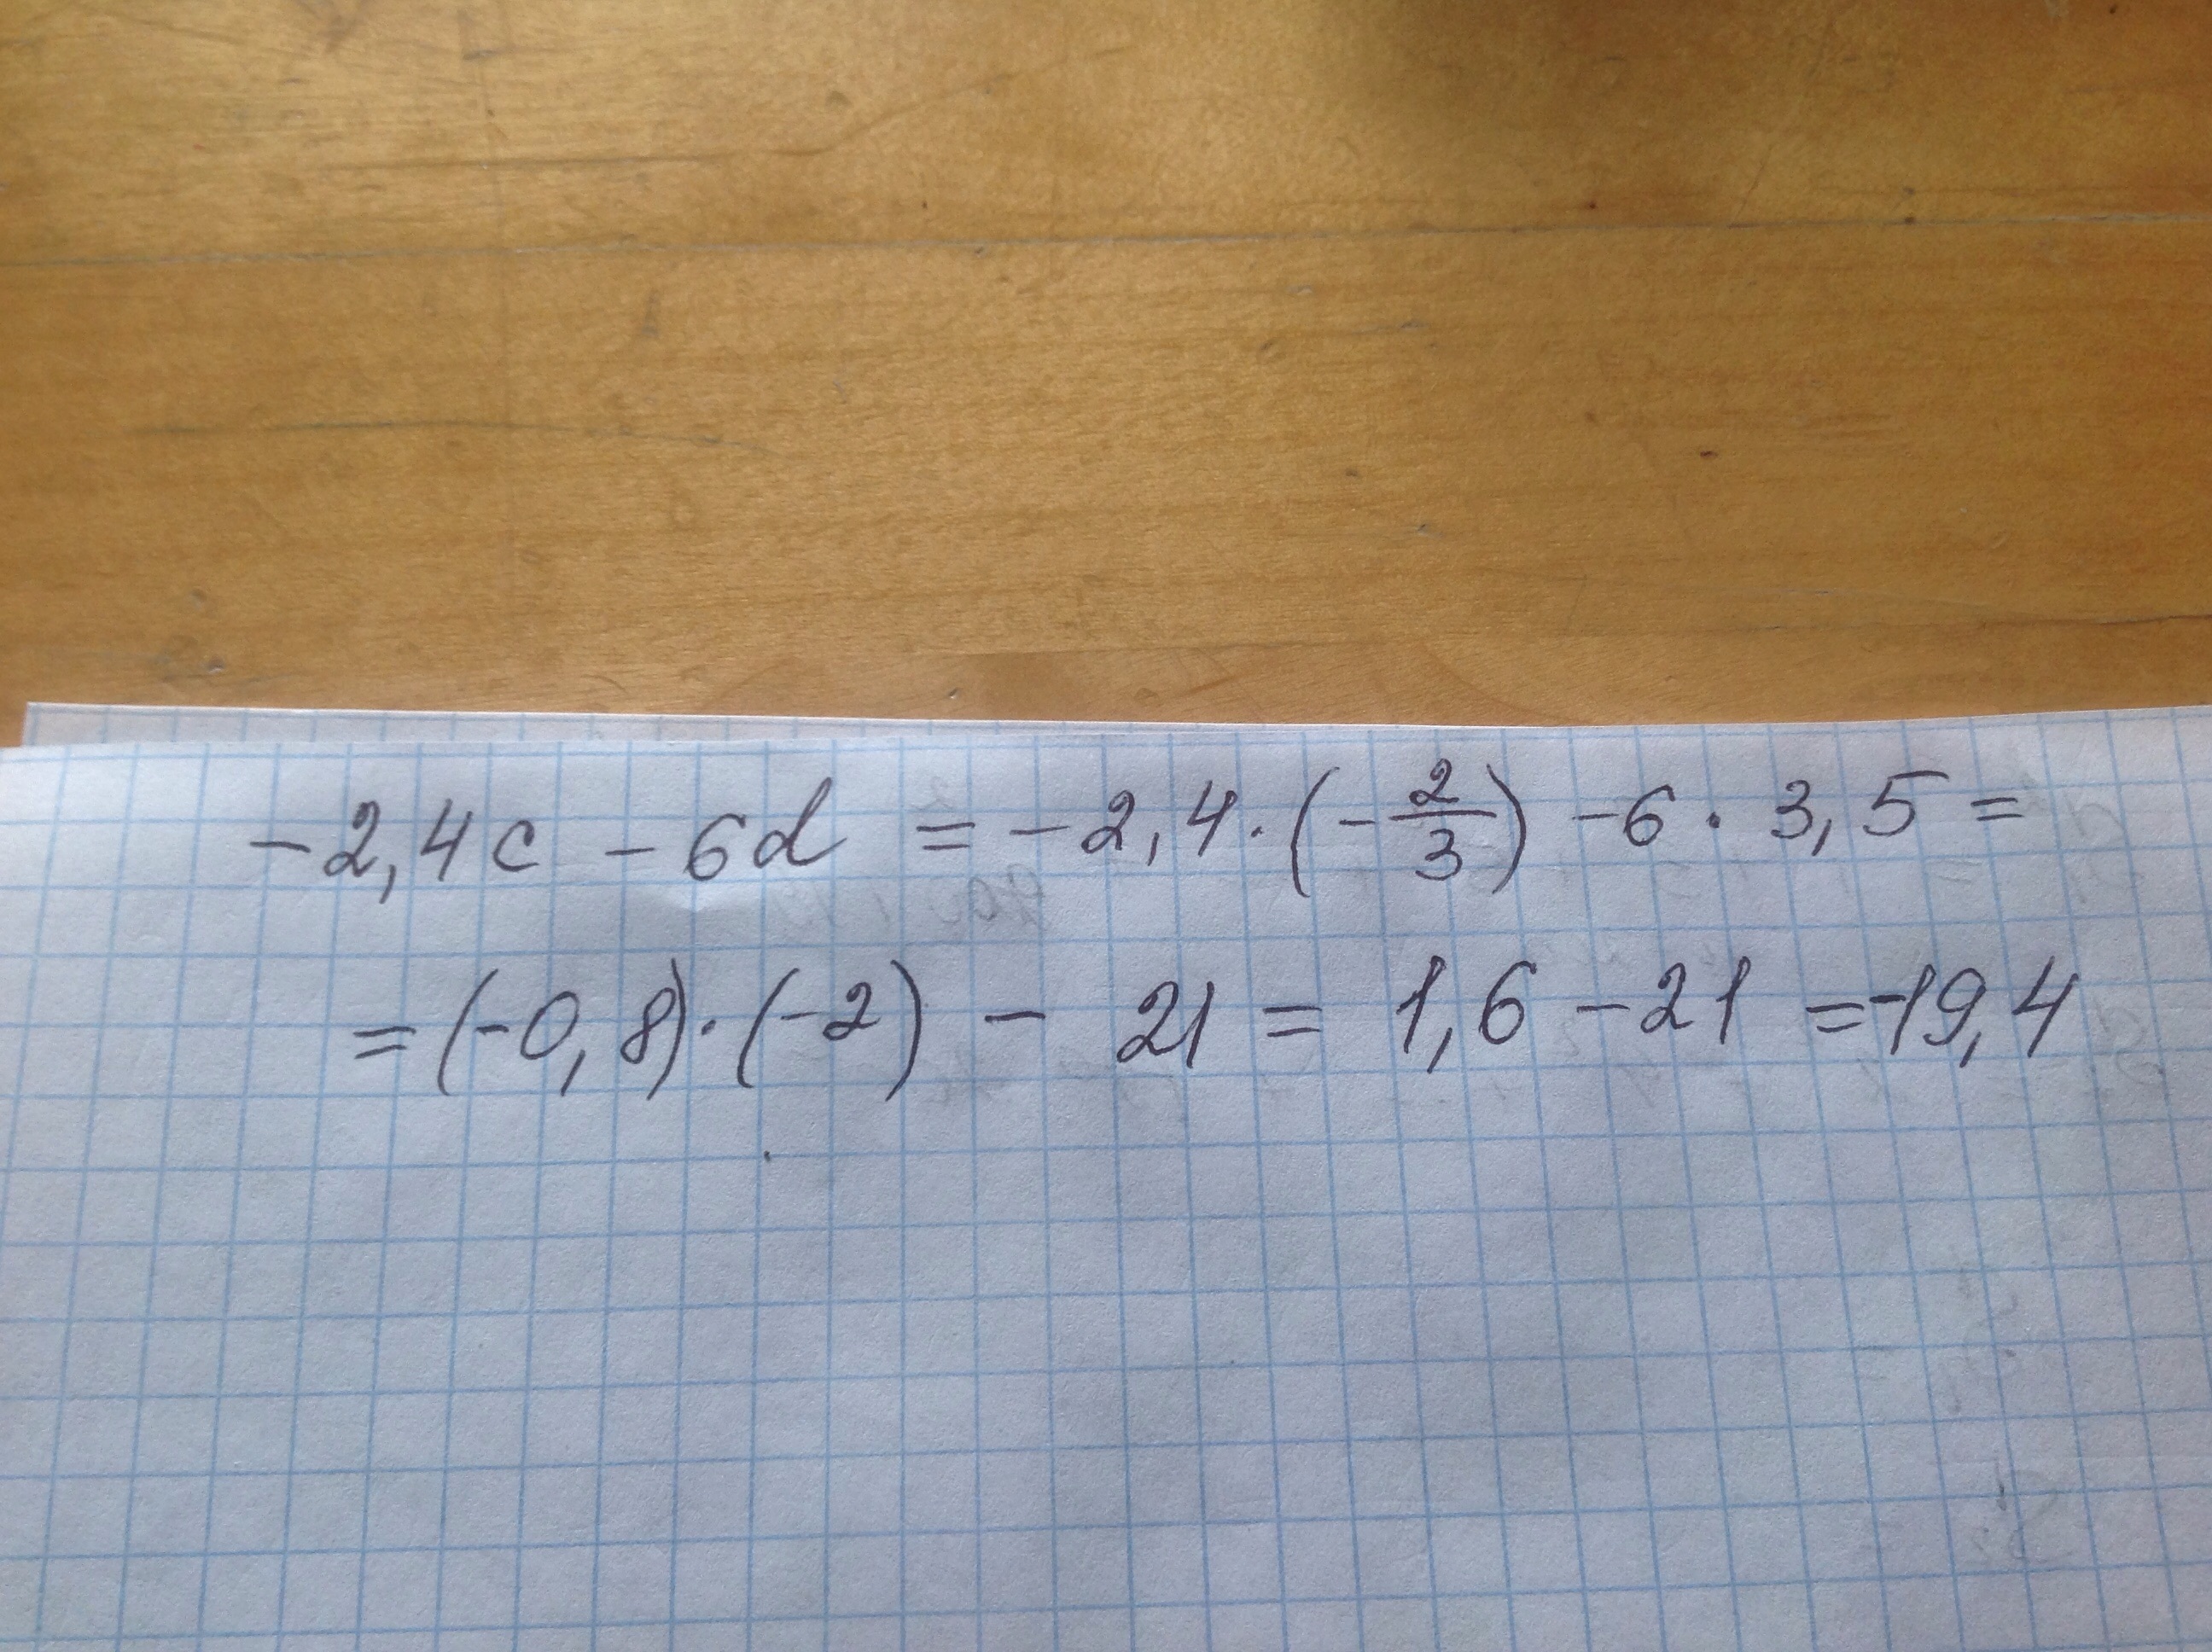 -2,4c - 6d = -2,4·(-2/3) -6·3,5=
=(-0,8)·(-2) - 21 = 1,6 -21 =-19,4